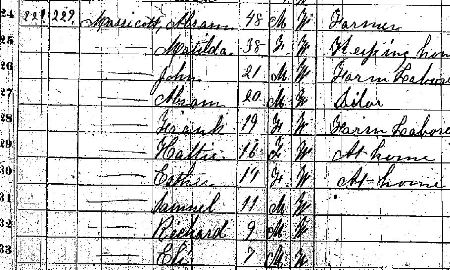 24 229 229 Marricott, Abram 48 M W Farmer
25 Matilda 38 F W Keeping hou
26 John 21 M W Farm Labore
27 Abram 20 M W Ditto
28 Frank 19 F W Farm Labore
29 Hattie 16 F W At home
30 14 F W At home
31 Samuel 11 M W
32 Richard 9 M W
33 Eli 7 M W